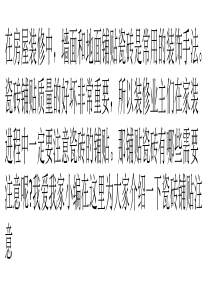 在房屋装修中，墙面和地面铺贴瓷砖是常用的装饰手法。
瓷砖铺贴质量的好坏非常重要，所以装修业主们在家装
进程中一定要注意瓷砖的铺贴。那铺贴瓷砖有哪些需要
注意呢?我爱我家小编在这里为大家介绍一下瓷砖铺贴注
意